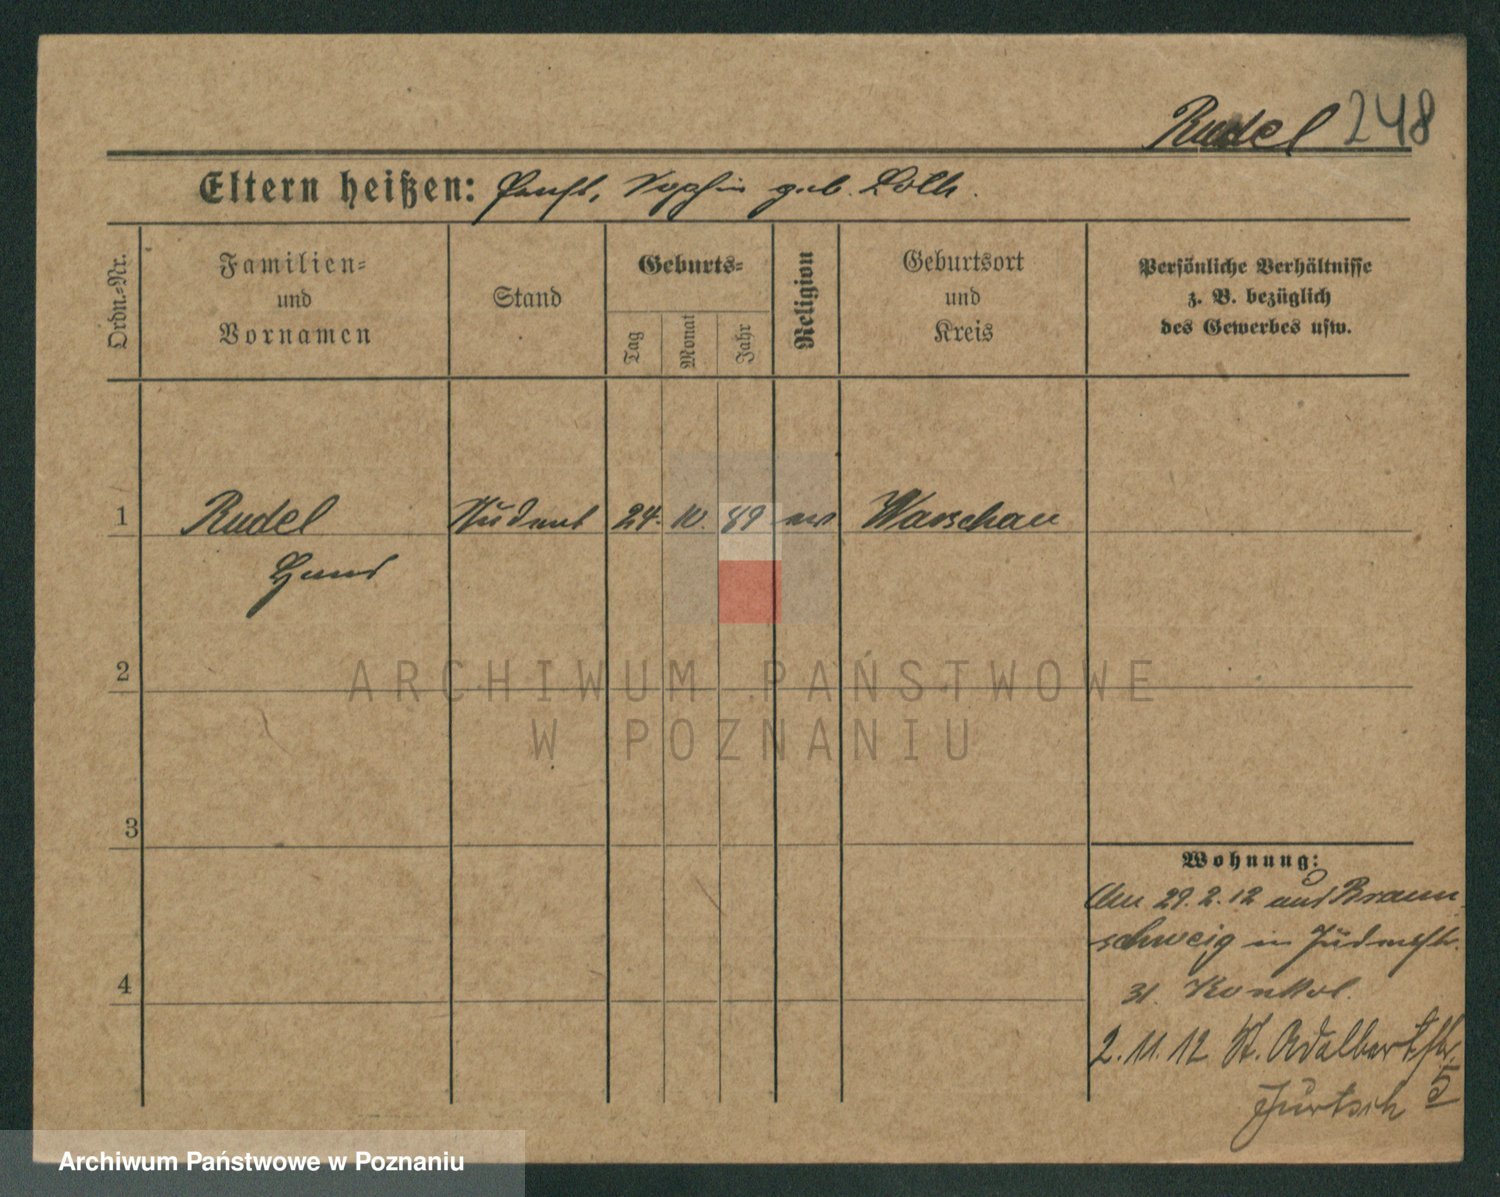 Rudel 248
Eltern heißen: Ernst, Sophie geb. Loth.
Ordn.-Nr.
Familien-
und
Vornamen
Stand
Geburts-
Tag
Monat
Jahr
Religion
Geburtsort
und
Kreis
Persönliche Verhältnisse
z. B. bezüglich
des Gewerbes usw.
1 Rudel Student 24. 10. 89 ev Warschau
Hans
2
3
4
Wohnung:
Am 29. 2. 12 aus Braun-
schweig in
31.
2. 11. 12 St. Adalbertstr.
5
ARCHIWUM PAŃSTWOWE
W POZNANIU
Archiwum Państwowe w Poznaniu